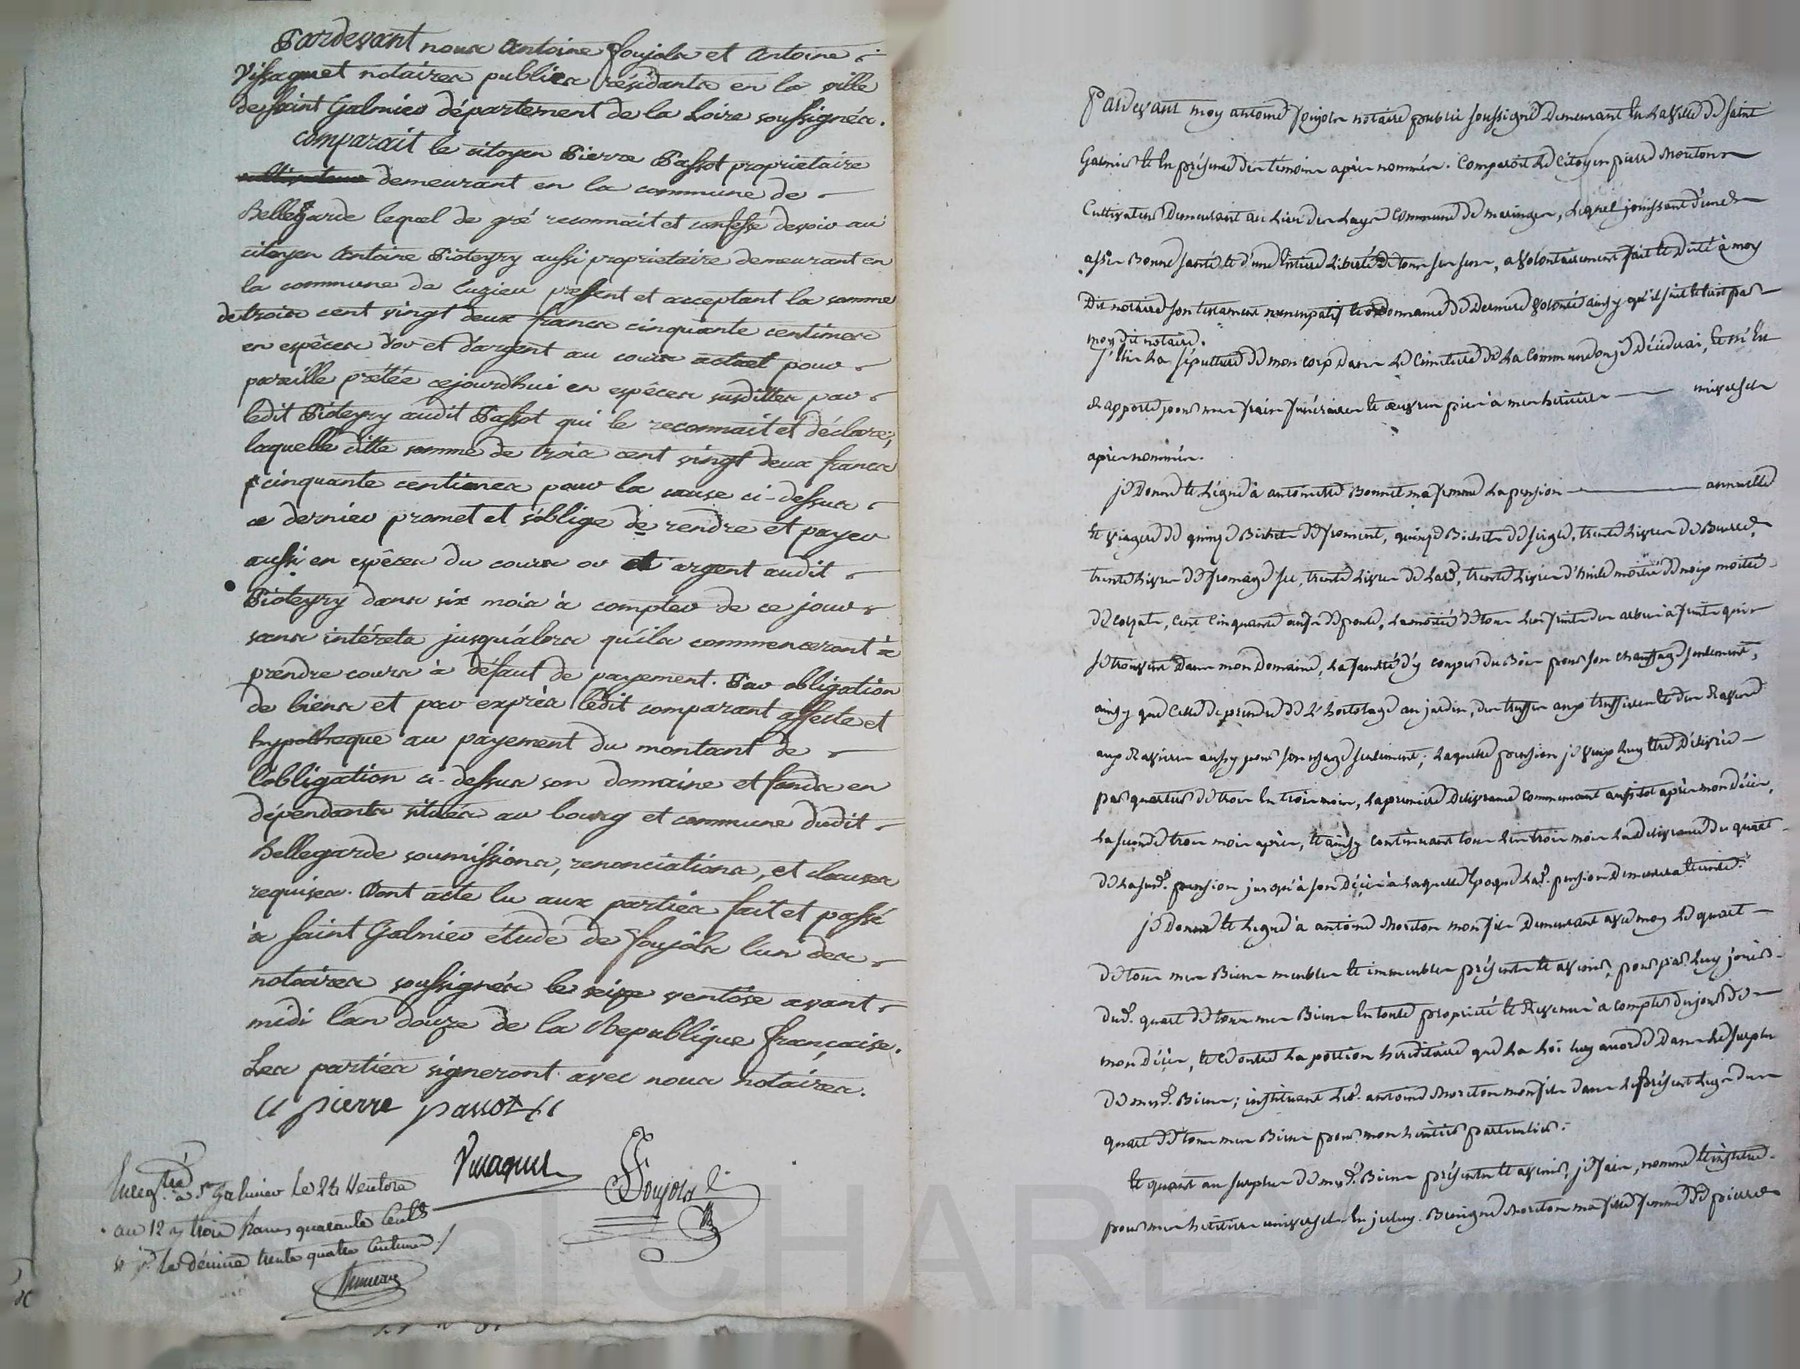 Pardevant nous Antoine Soujols et Antoine
Vissaguet notaires publics résidants en la ville
de Saint Galmier département de la Loire soussignés.
Comparait le citoyen Pierre Passot propriétaire
demeurant en la commune de
Bellegarde lequel de gré reconnait et confesse devoir au
citoyen Antoine Pioteyry aussi propriétaire demeurant en
la commune de Cuzieu présent et acceptant la somme
de trois cent vingt deux francs cinquante centimes
en espêces d'or et d'argent au cours actuel pour
pareille prêtée cejourdhui en espêces susdittes par
ledit Pioteyry audit Passot qui le reconnait et déclare;
laquelle ditte somme de trois cent vingt deux francs
cinquante centimes pour la cause ci-dessus
ce dernier promet et s'oblige de rendre et payer
aussi en espêces du cours or et argent audit
Pioteyry dans six mois à compter de ce jour
sans intérets jusqu'alors qu'ils commenceront à
prendre cours à défaut de payement. Par obligation
de biens et par exprès ledit comparant affecte et
hypotheque au payement du montant de
l'obligation ci-dessus son domaine et fonds en
dépendants situés au bourg et commune dudit
Bellegarde soumissions, renonciations, et clauses
requises. Dont acte lu aux parties fait et passé
à Saint Galmier étude de Soujols l'un des
notaires soussignés le seize ventôse avant
midi l'an douze de la République française.
Les parties signeront avec nous notaires.
pierre passot
Vissaguet Soujols
Enregtré à St Galmier le 24 Ventose
an 12 trois francs quarante centes
le décime trente quatre centimes
Pardevant moy antoine Soujols notaire public soussigné demeurant en la ville de Saint
Galmier et en présence des temoins après nommés. Comparoit le Citoyen pierre Moriton
Cultivateur demeurant au lieu des Layes Commune de maringes, lequel jouissant d'une
assés Bonne santé et d'une entiere liberté de tous ses sens, a volontairement fait et dicté à moy
dit notaire son testament nuncupatif et ordonnance de derniere volonté ainsy qu'il suit et écrit par
moy dit notaire.
J'élis la sépulture de mon corps dans le Cimetiere de la Commune ou je décéderai, et m'en
rapporte pour mes frais funéraires et œuvres pies à mon héritiere universelle
après nommée.
je donne et légue à antoinette Bonnet ma femme la pension annuelle
et viagere de quinze Bichets de froment, quinze Bichets de seigle, trente livres de Beurre,
trente livres de fromage sec, trente livres de lard, trente livres d'huile moitié de noix moitié
de colzats, cent cinquante œufs de poule, la moitié de tous les fruits des arbres à fruits qui
se trouvent dans mon domaine, la faculté d'y couper du Bois pour son chauffage seulement,
ainsy que celle de prendre de l'hortolage au jardin, des truffes aux truffieres et des Raves
aux Ravieres aussy pour son usage seulement; laquelle pension je veux luy être délivrée
par quartier de trois en trois mois, la premiere délivrance commençant aussitot après mon décès,
la seconde trois mois après, et ainsy continuant tous les trois mois la délivrance du quart
de la susd. pension jusqu'à son décès à laquelle époque lad. pension demeurera éteinte.
je donne et légue à antoine Moriton mon fils demeurant avec moy le quart
de tous mes Biens meubles et immeubles présents et avenir, pour par luy jouir
dud. quart de tous mes Biens en toute propriété et Revenus à compter du jour de
mon décès, et ce outre la portion héréditaire que la loi luy accorde dans le surplus
de mesd. Biens; instituant led. antoine Moriton mon fils dans le présent legs du
quart de tous mes Biens pour mon héritier particulier.
et quant au surplus de mesd. Biens présents et avenir, je fais, nomme et institue
pour mon héritiere universelle en iceluy. Benigne Moriton ma fille femme de pierre